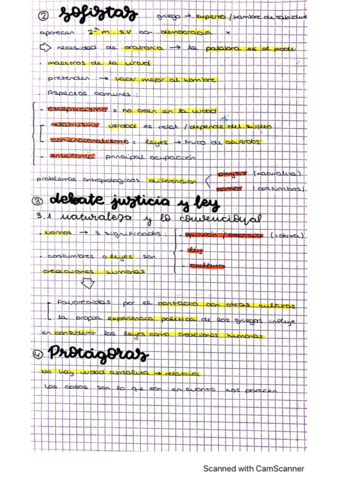 ② sofistas griego → experto / hombre de sabiduría
aparecen 2ª m. s.V con democracia
⇨ necesidad de oratoria → la palabra es el poder
· maestros de la virtud
pretenden → hacer mejor al hombre
Aspectos comunes:
- escepticismo = no creen en la verdad
- relativismo verdad es relat / depende del sujeto
- convencionalismo: leyes → fruto de acuerdos
- principal ocupación
problemas antropológicos diferencian physis (naturaleza)
nomos (costumbres)
③ debate justicia y ley
3.1 naturaleza y lo convencional
· nomos → 3 significados
ley
cultura
· costumbres o leyes son
creaciones humanas
Favorecidas por el contacto con otras culturas
la propia experiencia política de los griegos influye
en considerar las leyes como creaciones humanas
④ Protágoras
No hay verdad absoluta → relativa
Las cosas son lo que son en cuanto nos parecen
Scanned with CamScanner